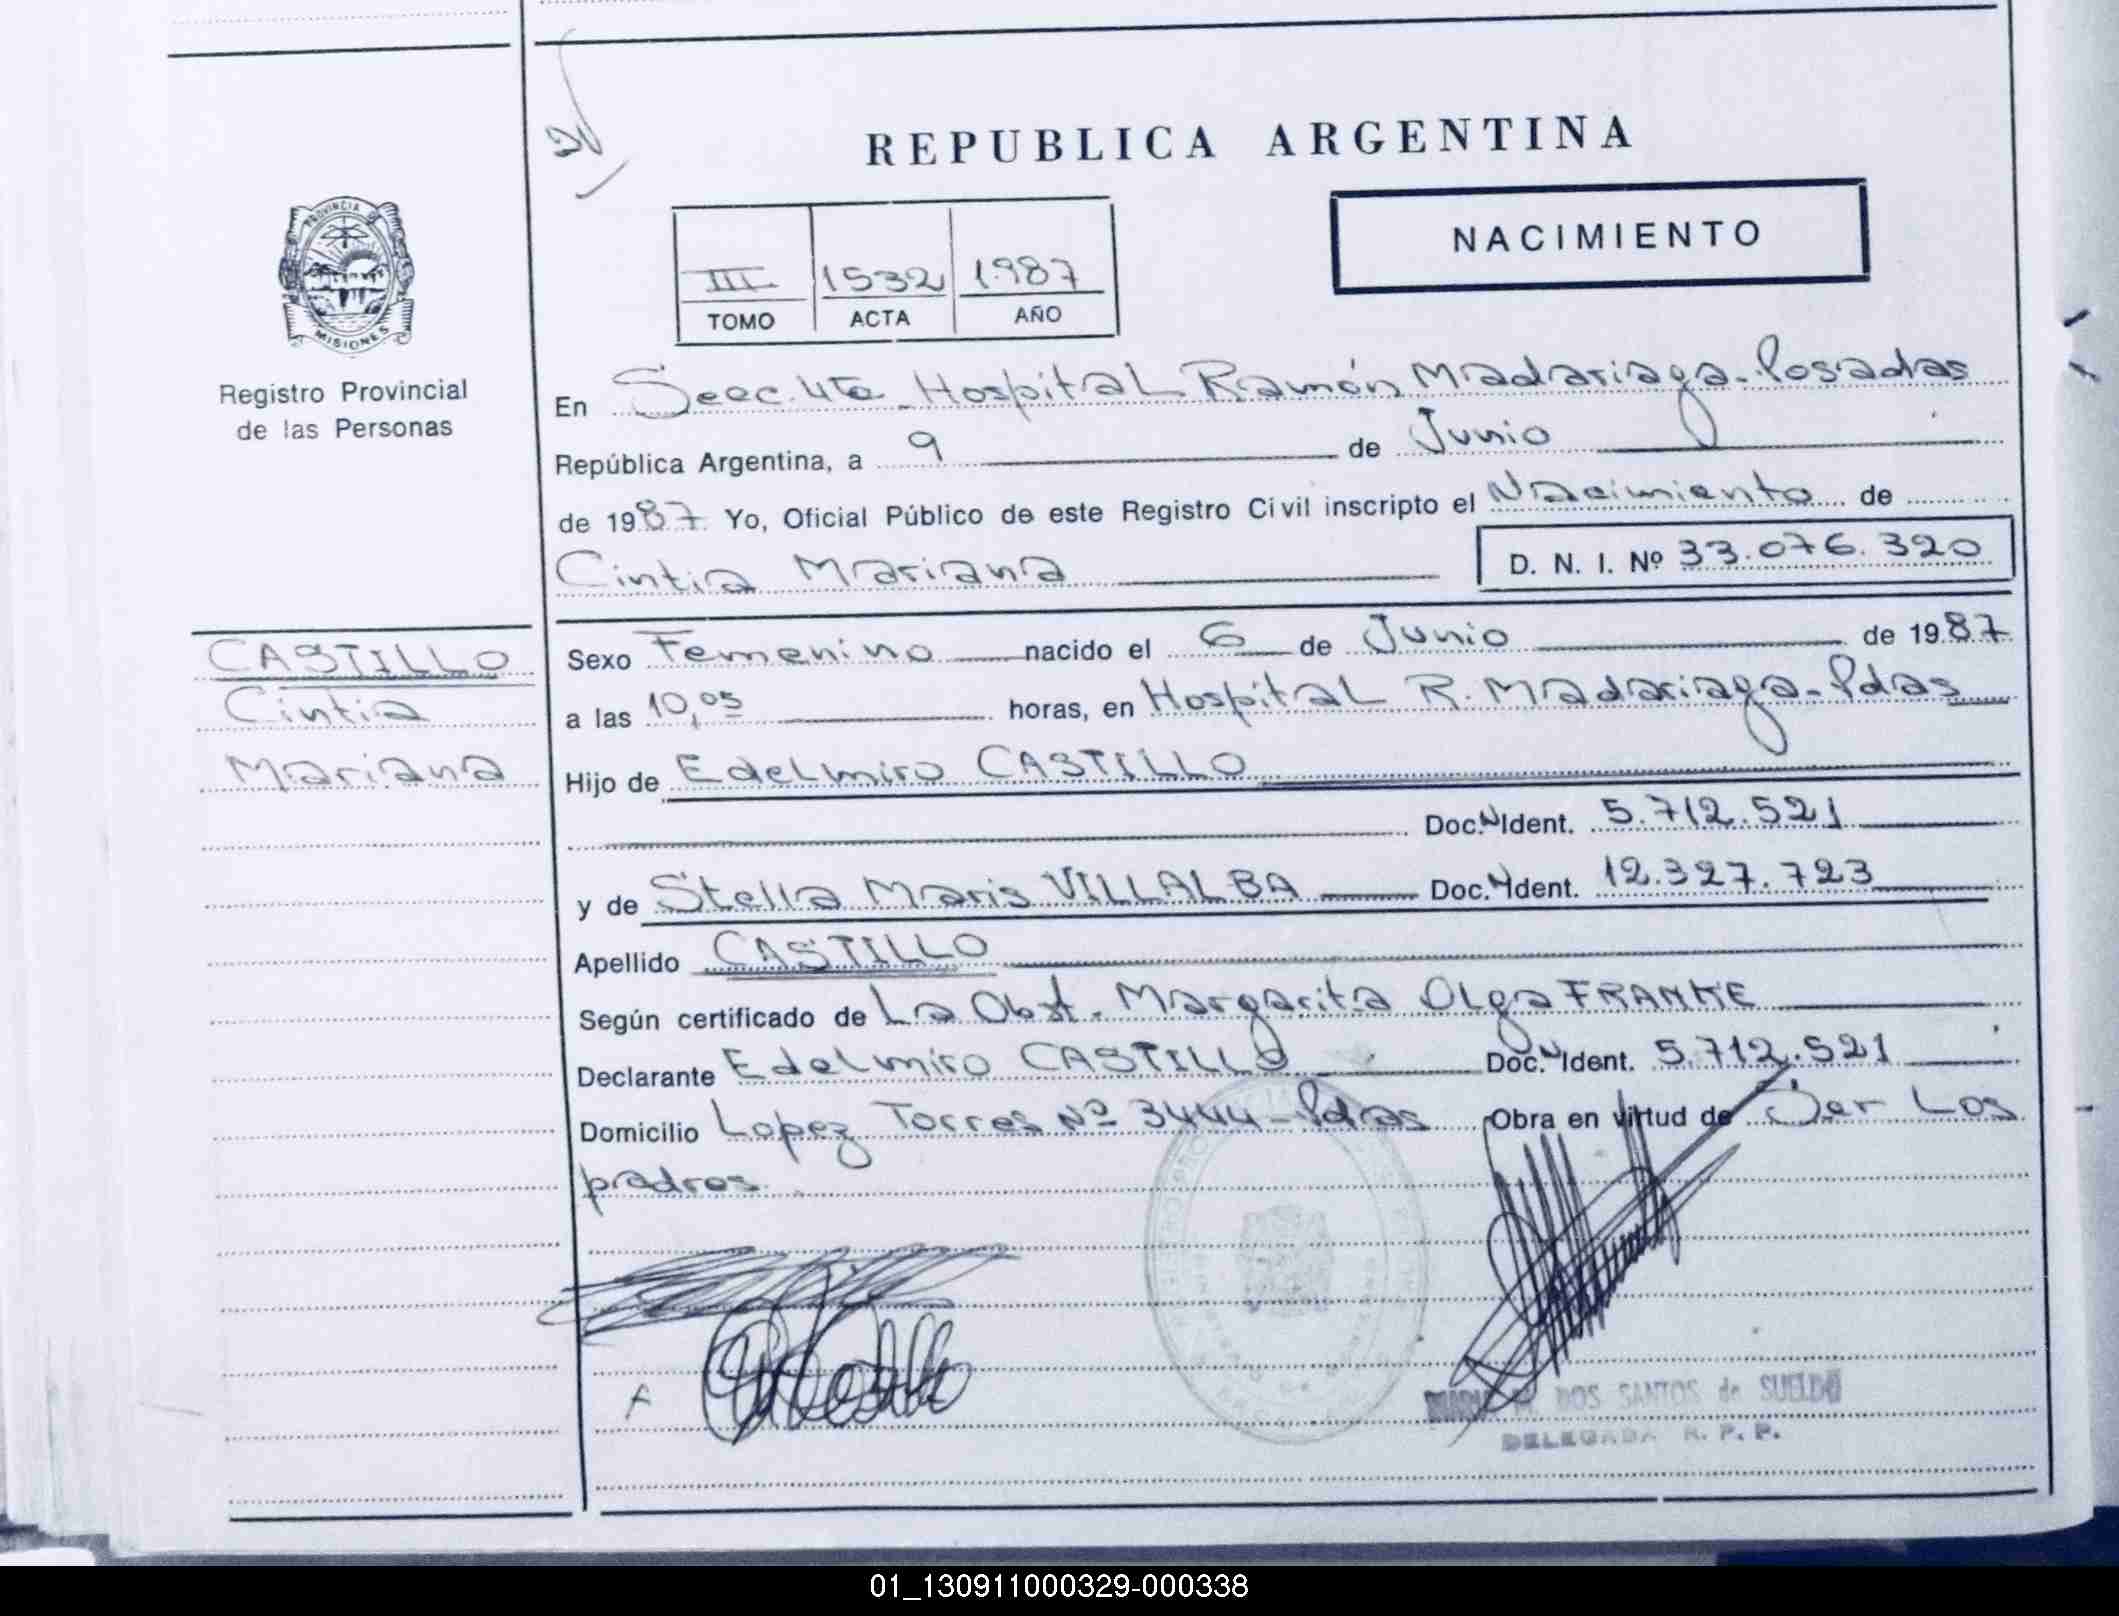 REPUBLICA ARGENTINA
NACIMIENTO
III 1532 1.987
TOMO ACTA AÑO
PROVINCIA D
MISIONES
Registro Provincial
de las Personas
CASTILLO
Cintia
Mariana
En Secc. 4ta. Hospital Ramón Madariaga - Posadas
República Argentina, a 9 de Junio
de 1987. Yo, Oficial Público de este Registro Civil inscripto el Nacimiento de
Cintia Mariana D. N. I. Nº 33.076.320
Sexo Femenino nacido el 6 de Junio de 1987.
a las 10,05 horas, en Hospital R. Madariaga - Pdas
Hijo de Edelmiro CASTILLO
Doc. N Ident. 5.712.521
y de Stella Maris VILLALBA Doc. N Ident. 12.327.723
Apellido CASTILLO
Según certificado de La Obst. Margarita Olga FRANKE
Declarante Edelmiro CASTILLO Doc. N Ident. 5.712.521
Domicilio Lopez Torres Nº 3444 - Pdas Obra en virtud de Ser Los
padres.
A
DOS SANTOS de SUELDO
DELEGADA R. P. P.
01_130911000329-000338